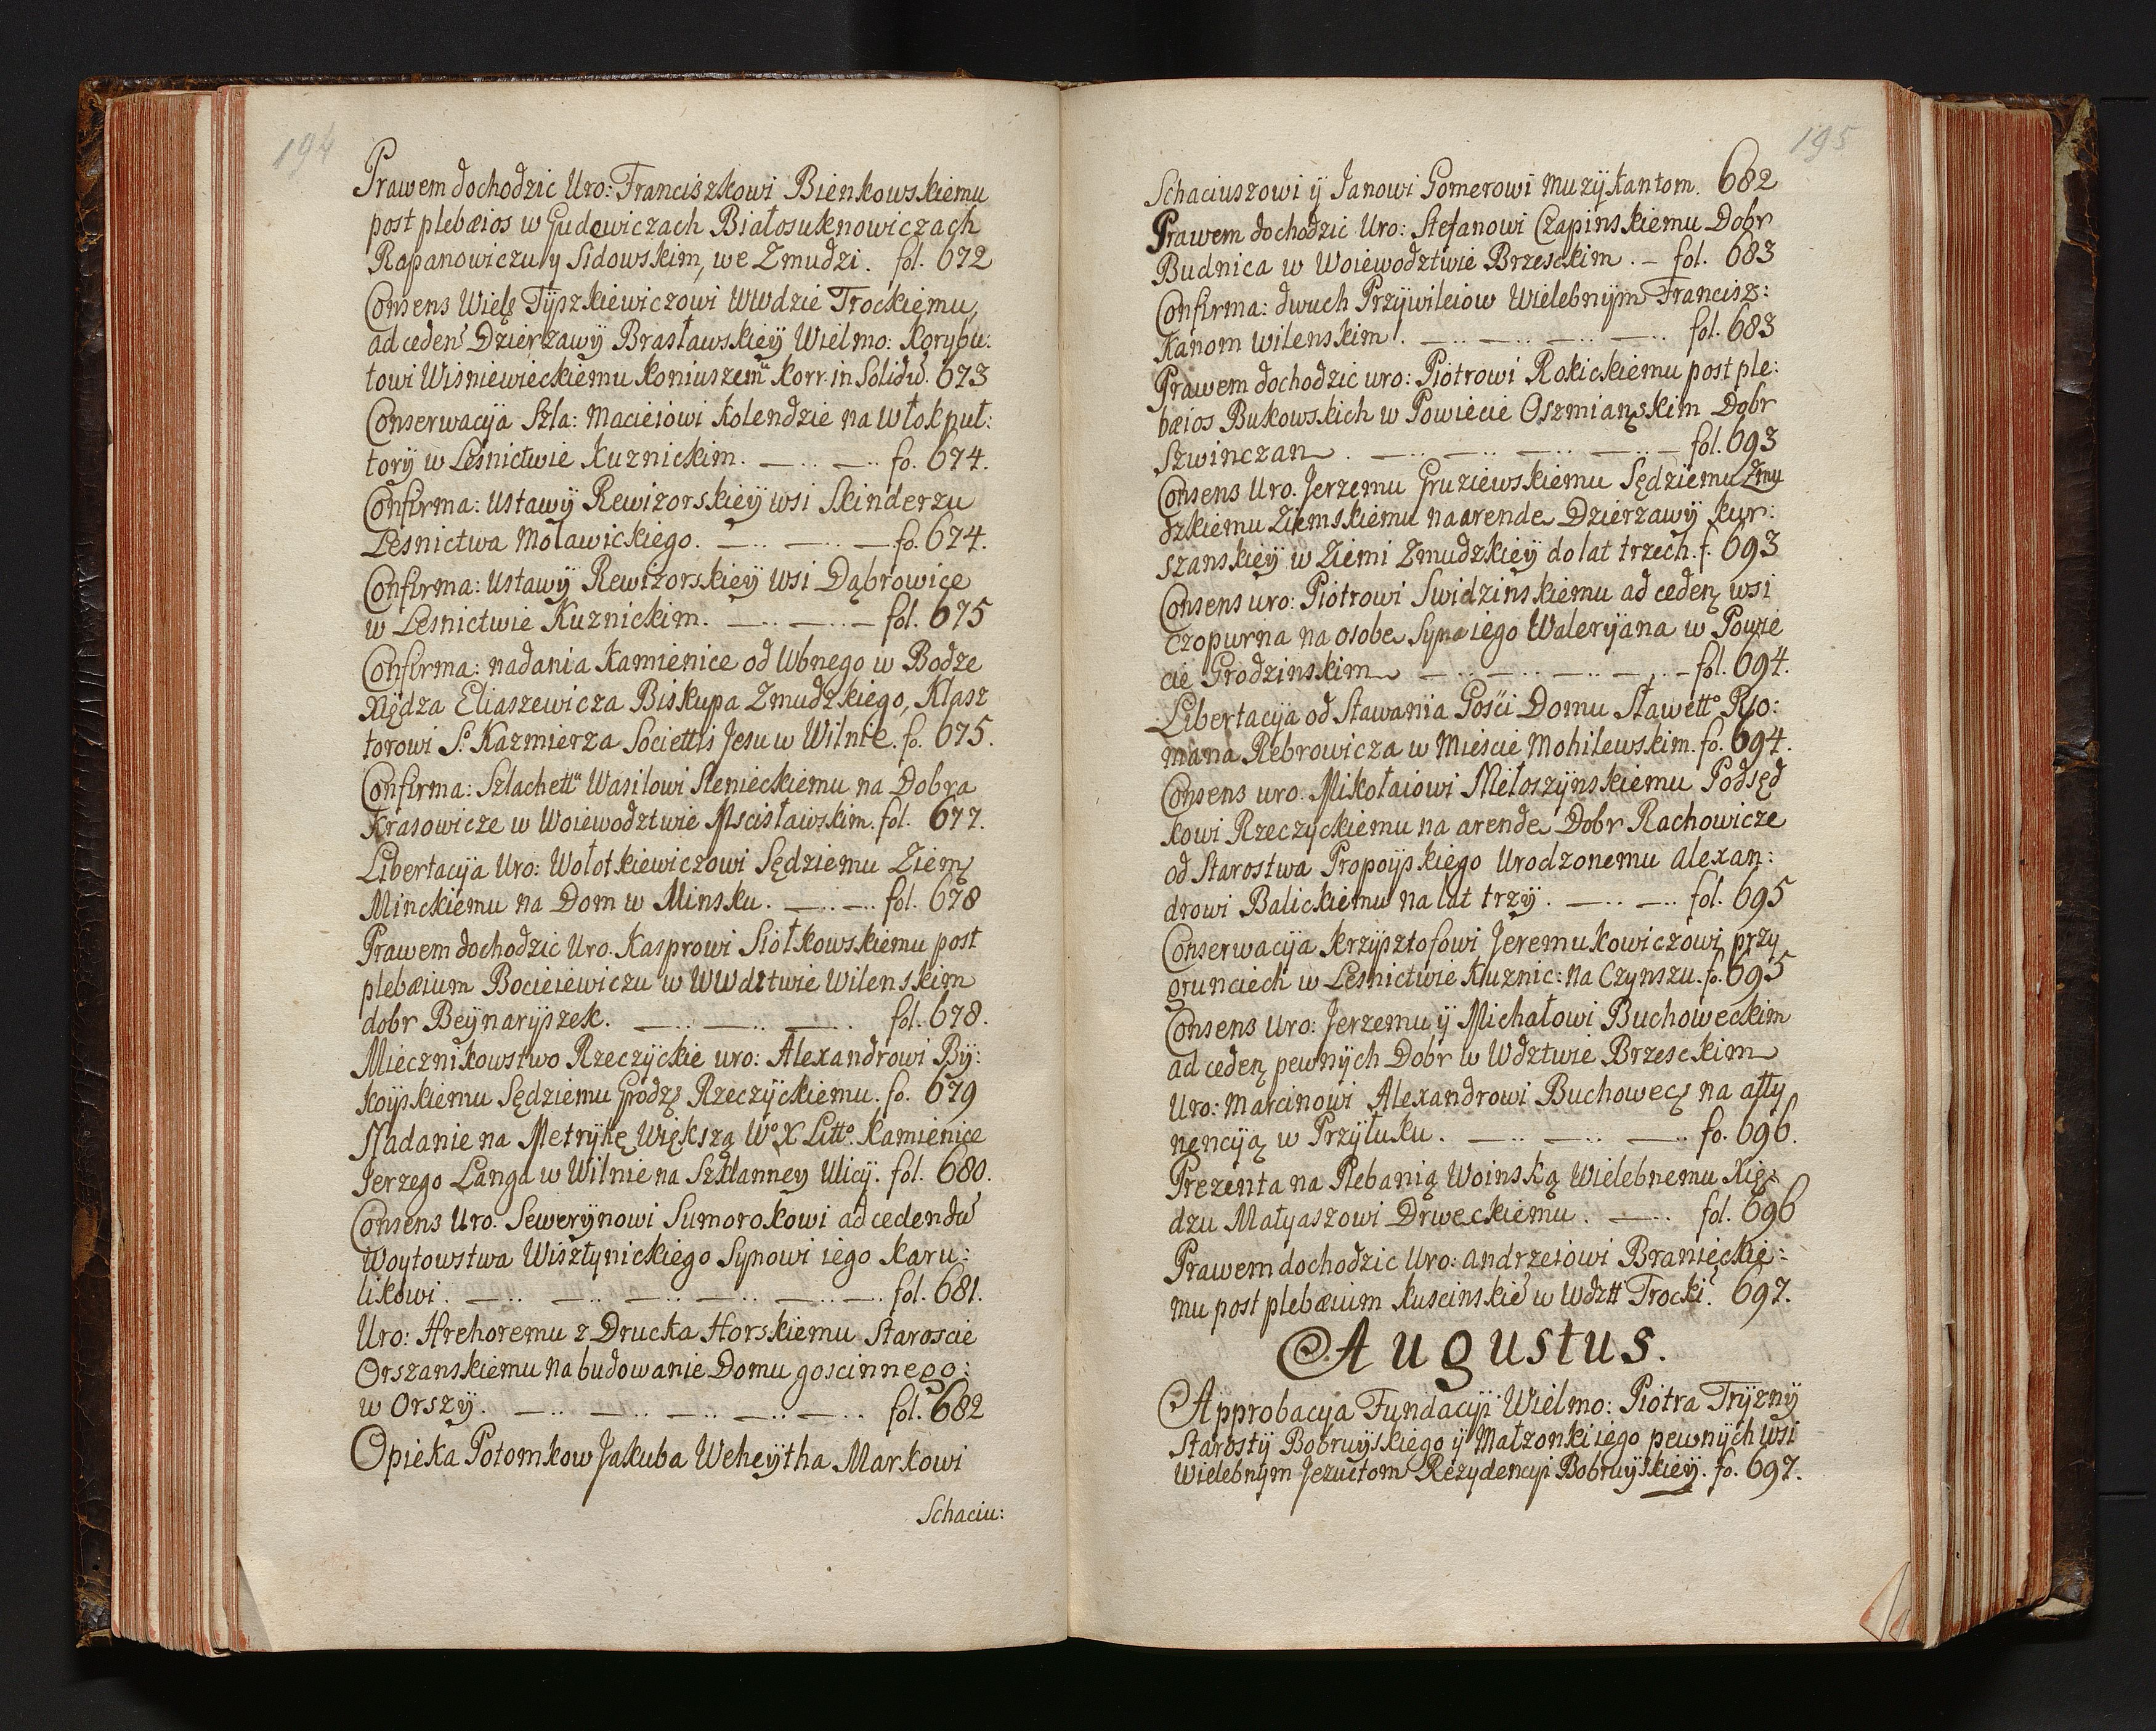 194
Prawem dochodzic Uro: Franciszkowi Bienkowskiemu
post plebæios w Gudowiczach Białosuknowiczach
Rapanowiczu y Sidowskim, we Zmudzi. fol. 672
Consens Wielę Tÿszkiewiczowi WWdzie Trockiemu,
ad ceden Dzierzawÿ Brasławskieÿ Wielmo: Korybu:
towi Wisniewieckiemu Koniuszemu Korr. in Solidũ. 673
Conserwacÿa Szla: Macieiowi Kolendzie na Włok puł:
torÿ w Lesnictwie Kuznickim. fo. 674.
Confirma: Ustawÿ Rewizorskieÿ wsi Skinderzu
Lesnictwa Moławickiego. fo. 674.
Confirma: Ustawÿ Rewizorskieÿ wsi Dąbrowice
w Lesnictwie Kuznickim. fol. 675
Confirma: nadania Kamienice od Wbnego w Bodze
Xiędza Eliaszewicza Biskupa Zmudzkiego, Klasz
torowi S. Kazmierza Societtis Jesu w Wilnie. fo. 675.
Confirma: Szlachettu Wasilowi Sienieckiemu na Dobra
Krasowicze w Woiewodztwie Mscisławskim. fol. 677.
Libertacÿa Uro: Wołotkiewiczowi Sędziemu Ziemę
Minckiemu na Dom w Minsku. fol. 678
Prawem dochodzic Uro. Kasprowi Siotkowskiemu post
plebæium Bocieiewiczu w WWdztwie Wilenskim
dobr Beÿnarÿszek. fol. 678.
Miecznikowstwo Rzeczÿckie uro: Alexandrowi Bÿ:
koÿskiemu Sędziemu Grodzę Rzeczÿckiemu. fo. 679
Nadanie na Metrÿkę Większą Wo X Litto. Kamienice
Jerzego Langa w Wilnie na Szklanneÿ Ulicÿ. fol. 680.
Consens Uro. Sewerÿnowi Sumorokowi ad cedendũ
Woytowstwa Wisztynickiego Synowi iego Karu:
likowi. fol. 681.
Uro: Hrehoremu z Drucka Horskiemu Staroscie
Orszanskiemu na budowanie Domu goscinnego:
w Orszÿ. fol. 682
Opieka Potomkow Jakuba Weheÿtha Markowi
Schaciu:
195
Schaciuszowi ÿ Janowi Gomerowi Muzÿkantom. 682
Prawem dochodzic Uro: Stefanowi Czapinskiemu Dobr
Budnica w Woiewodztwie Brzesckim. fol. 683
Confirma: dwuch Przÿwileiow Wielebnÿm Francisz:
Kanom Wilenskim. fol. 683
Prawem dochodzic uro: Piotrowi Rokickiemu post ple:
bæios Bukowskich w Powiecie Oszmianskim Dobr
Szwinczan. fol. 693
Consens Uro. Jerzemu Gruziewskiemu Sędziemu Zmu
dzkiemu Ziemskiemu na arende Dzierzawÿ Kur:
szanskieÿ w Ziemi Zmudzkieÿ do lat trzech. f. 693
Consens uro: Piotrowi Swidzinskiemu ad cedenę wsi
Czopurna na osobe Syna iego Walerÿana w Powie
cie Grodzinskim fol. 694.
Libertacÿa od Stawania Gosci Domu Sławetto Ro:
mana Rebrowicza w Miescie Mohilewskim. fo. 694.
Consens uro. Mikołaiowi Miłoszÿnskiemu Podsęd
kowi Rzeczÿckiemu na arende Dobr Rachowicze
od Starostwa Propoÿskiego Urodzonemu Alexan:
drowi Balickiemu na lat trzÿ. fol. 695
Conserwacÿa Krzÿsztofowi Jeremukowiczowi przy
grunciech w Lesnictwie Kuznic: na Czynszu. fo. 695
Consens Uro: Jerzemu ÿ Michałowi Buchoweckim
ad cedenę pewnÿch Dobr w Wdztwie Brzesckim
Uro: Marcinowi Alexandrowi Buchowecę na atty
nencÿą w Przÿłuku. fo. 696.
Prezenta na Plebanią Woinską Wielebnemu Xię
dzu Matyaszowi Drweckiemu. fol. 696
Prawem dochodzic Uro: Andrzeiowi Braniecki:
mu post plebæium Kuscinskie w Wdztt Trocki. 697.
Augustus.
Approbacya Fundacÿi Wielmo: Piotra Trÿznÿ
Starostÿ Bobruÿskiego ÿ Małzonki iego pewnÿch wsi
Wielebnÿm Jezuitom Rezydencÿi Bobruÿskieÿ. fo. 697.